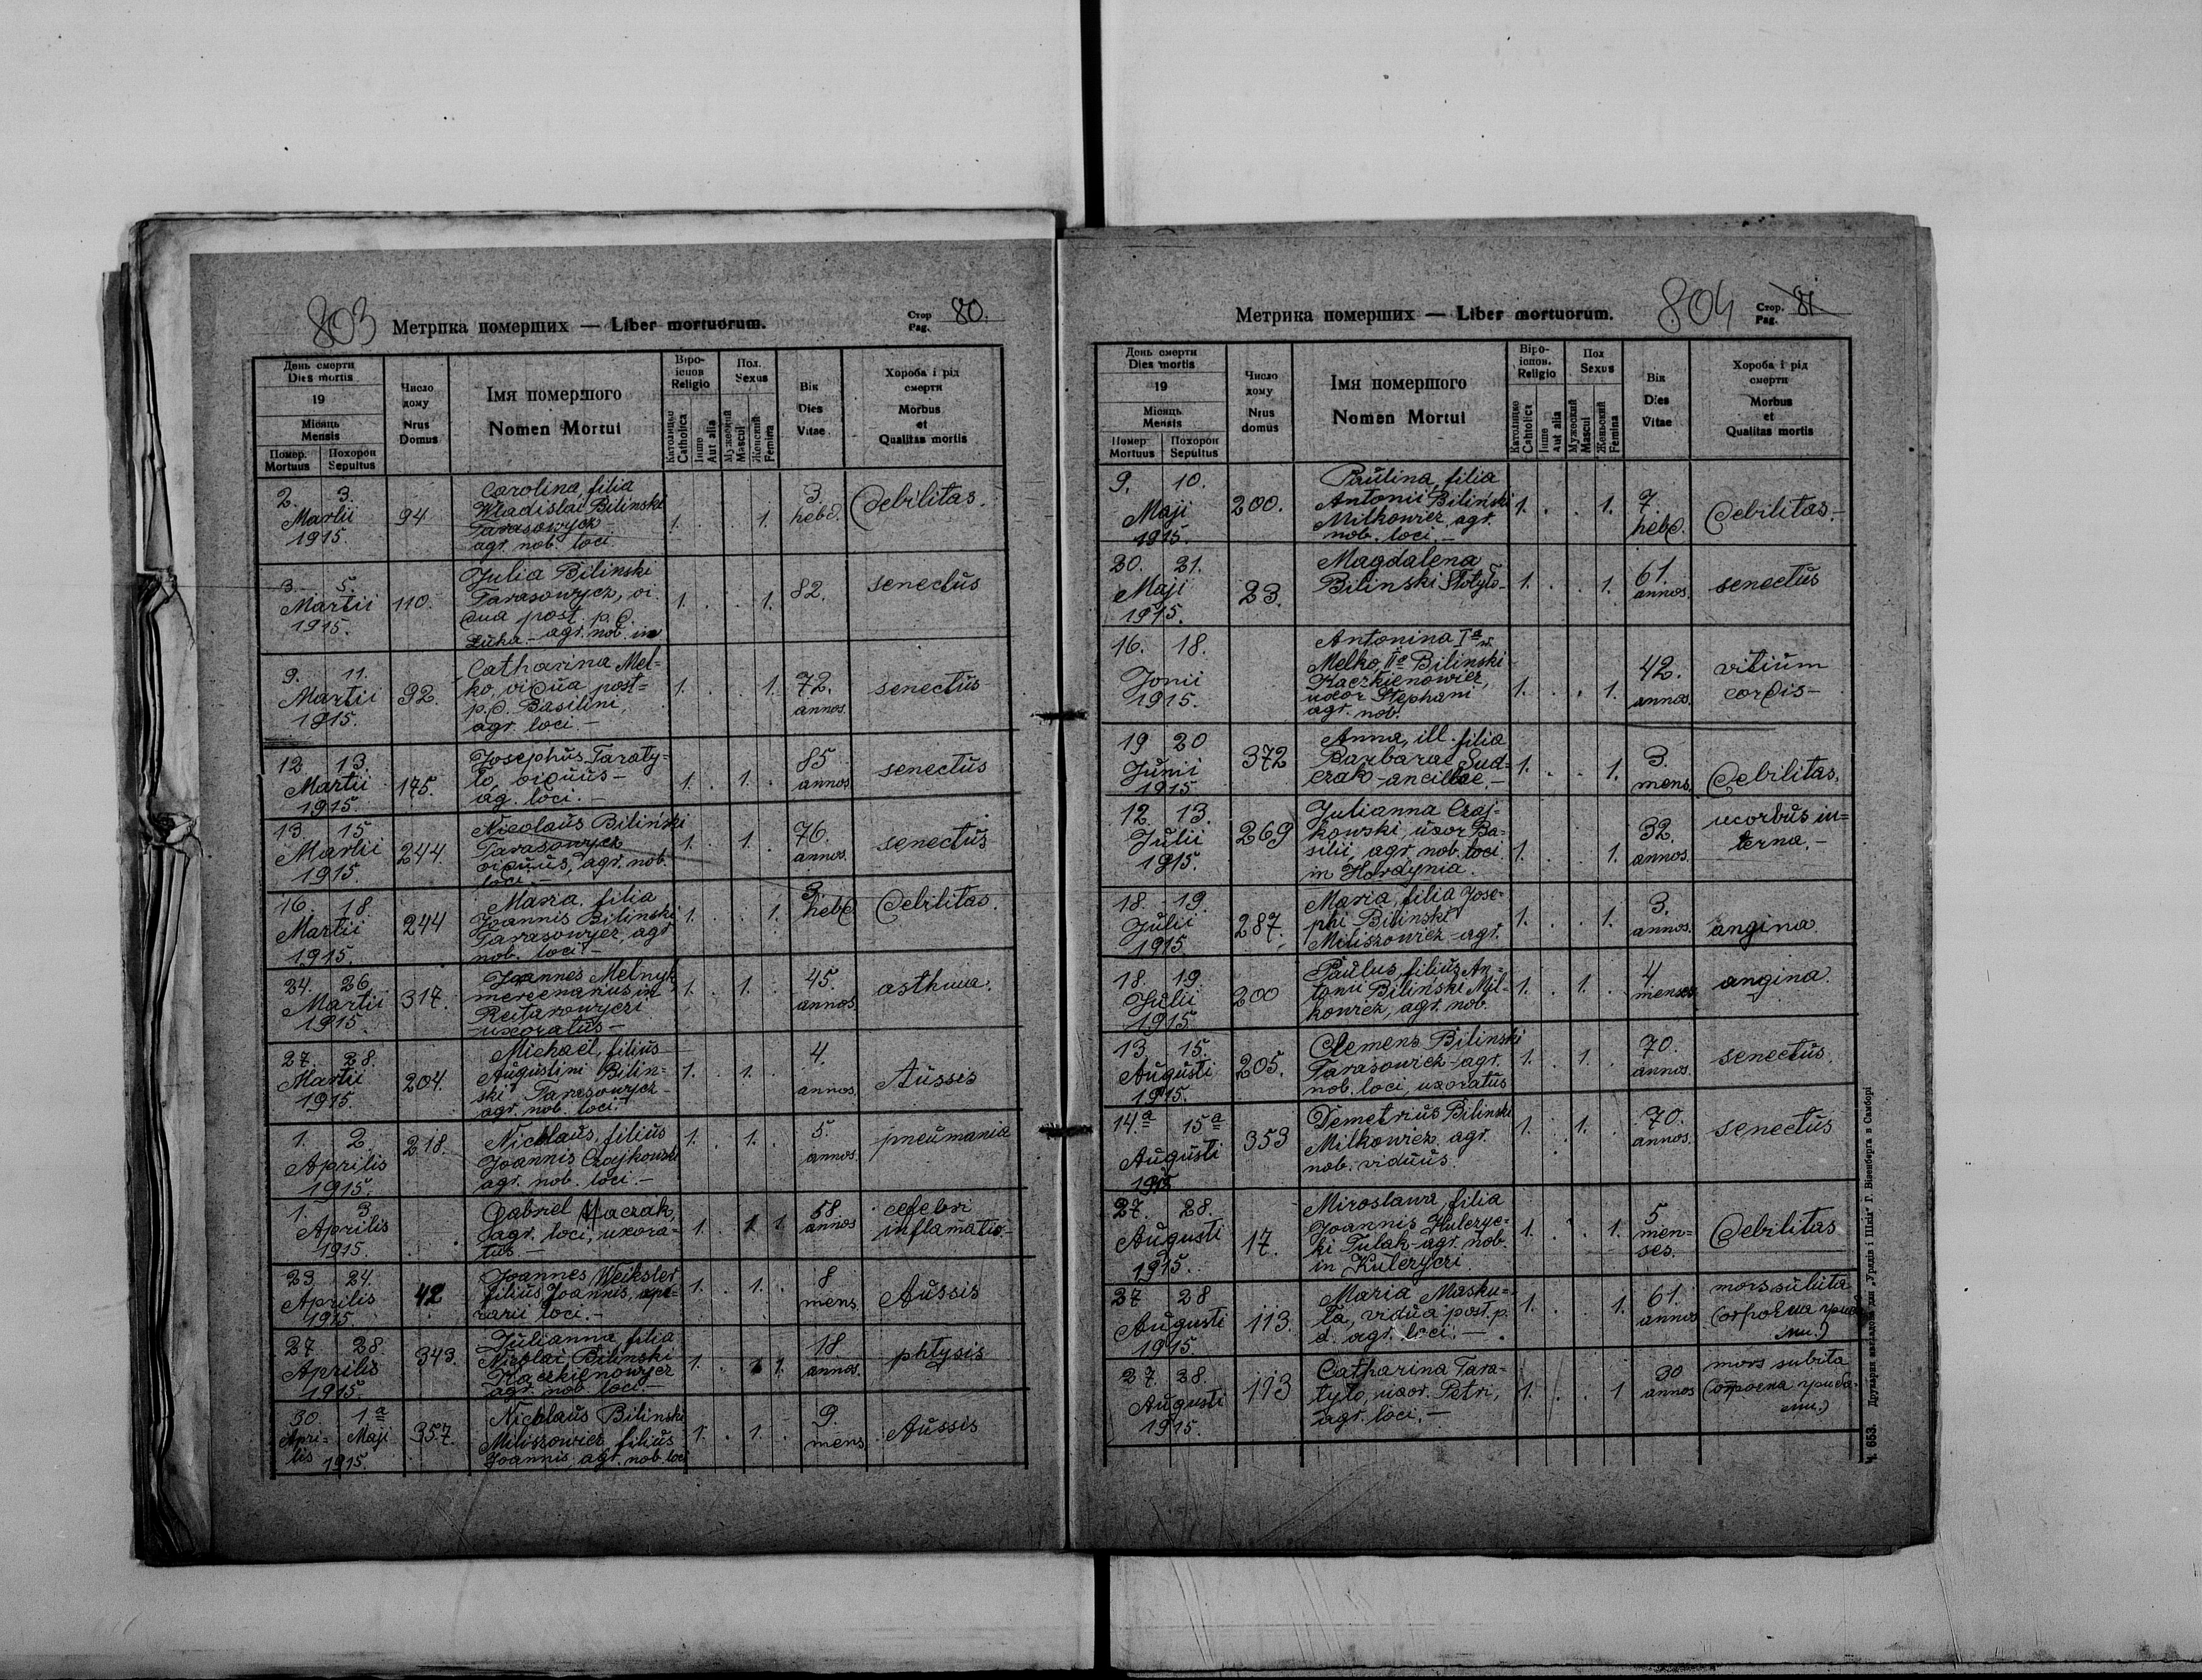 803
Метрика померших — Liber mortuorum.
Стор
Pag.
80.
День смерти
Dies mortis
19
Місяць
Mensis
Помер.
Mortuus
Похорон
Sepultus
Число
дому
Nrus
Domus
Імя помершого
Nomen Mortui
Віро-
існов
Religio
Католицке
Catholica
Інше
Aut alia
Пол.
Sexus
Мужеский
Mascul
Женский
Femina
Вік
Dies
Vitae
Хороба і рід
смерти
Morbus
et
Qualitas mortis
2. 3.
Martii
1915
94
Carolina, filia
Wladislai Bilinski
Tarasowycz
agr. nob. loci
1. 1.
3.
hebd.
Debilitas.
3. 5.
Martii
1915.
110.
Julia Bilinski
Tarasowycz, vi-
dua post. p. d.
Luka - agr. nob. in
1. 1.
82.
senectus
9. 11.
Martii
1915.
92.
Catharina Mel-
ko, vidua post-
p. d. Basilini,
agr. loci -
1. 1.
72.
annos.
senectus
12 13.
Martii
1915.
175.
Josephus Taraty-
ło, viduus -
ag. loci. -
1. 1.
85
annos
senectus
13. 15
Martii
1915.
244.
Nicolaus Biliński
Tarasowycz
viduus, agr. nob.
loci
1. 1.
76.
annos.
senectus
16. 18
Martii
1915.
244
Maria, filia
Joannis Bilinski
Tarasowycz, agr.
nob. loci -
1. 1.
3.
hebd
Debilitas.
24. 26
Martii
1915.
317.
Joannes Melnyk
mercenarius in
uxoratus -
1. 1.
45.
annos
asthma.
27. 28.
Martii
1915.
204.
Michael, filius
Augustini Bilin-
ski Tarasowycz
agr. nob. loci.
1. 1.
4.
annos.
tussis
1. 2
Aprilis
1915.
218.
Nicolaus, filius
Joannis Czajkowski
agr. nob. loci. -
1. 1.
5.
annos.
pneumania
1. 3
Aprilis
1915.
Gabriel
agr. loci, uxora-
tus -
1. 1
58
annos
cerebri
inflamatio -
23. 24.
Aprilis
1915.
42
Joannes Weiksler
filius Joannis,
loci. -
1. 1.
8
mens.
tussis
27. 28.
Aprilis
1915
343.
Julianna, filia
Nicolai Bilinski
Kaczkienowycz
agr. nob. loci. -
1. 1.
18
annos.
phtysis
30. 1a
Apri- Maji
lis 1915.
357.
Nicolaus Bilinski
Miliszowicz filius
Joannis, agr. nob. loci
1. 1.
9.
mens
tussis
Метрика померших — Liber mortuorum.
804
Стор.
Pag.
81
День смерти
Dies mortis
19
Місяць
Mensis
Помер
Mortuus
Похорон
Sepultus
Число
дому
Nrus
domus
Імя помершого
Nomen Mortui
Віро-
існов.
Religio
Католицке
Cahtolica
Інше
Aut alia
Пол
Sexus
Мужеский
Mascul
Женьский
Femina
Вік
Dies
Vitae
Хороба і рід
смерти
Morbus
et
Qualitas mortis
9. 10.
Maji
1915.
200.
Paulina, filia
Antonii Biliński
Milkowicz, agr.
nob. loci. -
1. 1.
7.
hebd.
Debilitas -
20. 21.
Maji
1915.
23.
Magdalena
Bilinski
1. 1.
61.
annos.
senectus
16. 18.
Jonii
1915.
Antonina Ia v.
Melko IIo Bilinski
Kaczkienowicz,
uxor Stephani
agr. nob.
1. 1.
42.
annos.
vitium
cordis -
19 20
Junii
1915
372
Anna, ill. filia
Barbarae Sud-
czak - ancillae. -
1. 1.
3.
mens.
Debilitas.
12. 13.
Julii
1915.
269
Julianna Czaj-
kowski, uxor Ba-
silii, agr. nob. loci
in Hordynia.
1. 1.
32.
annos.
morbus in-
terna. -
18. 19.
Julii
1915.
287.
Maria, filia Jose-
phi Bilinski
Miliszowicz - agr.
1. 1.
3.
annos.
angina
18. 19.
Julii
1915.
200
Paulus, filius An-
tonii Biliński Mil-
kowicz, agr. nob.
1. 1.
4
menses
angina.
13. 15.
Augusti
1915.
205.
Clemens Bilinski
Tarasowicz - agr.
nob. loci, uxoratus
1. 1.
70.
annos.
senectus
14.a 15a
Augusti
1915
353
Demetrius Bilinski
Milkowicz agr.
nob. viduus.
1. 1.
70.
annos.
senectus
27. 28.
Augusti
1915.
17.
Miroslawa, filia
Joannis Kulczyc-
ki Tulak - agr. nob.
in Kulczyci
1. 1.
5
men-
ses.
Debilitas
27 28
Augusti
1915.
113.
Maria Masku-
ła, vidua post. p.
d. agr. loci. -
1. 1.
61.
annos
mors subita
27. 28.
Augusti
1915.
113
Catharina Tara-
tyło, uxor. Petri,
agr. loci. -
1. 1
30
annos
mors subita
Ч. 653. Друкарня і Г. Візенберга в Самборі